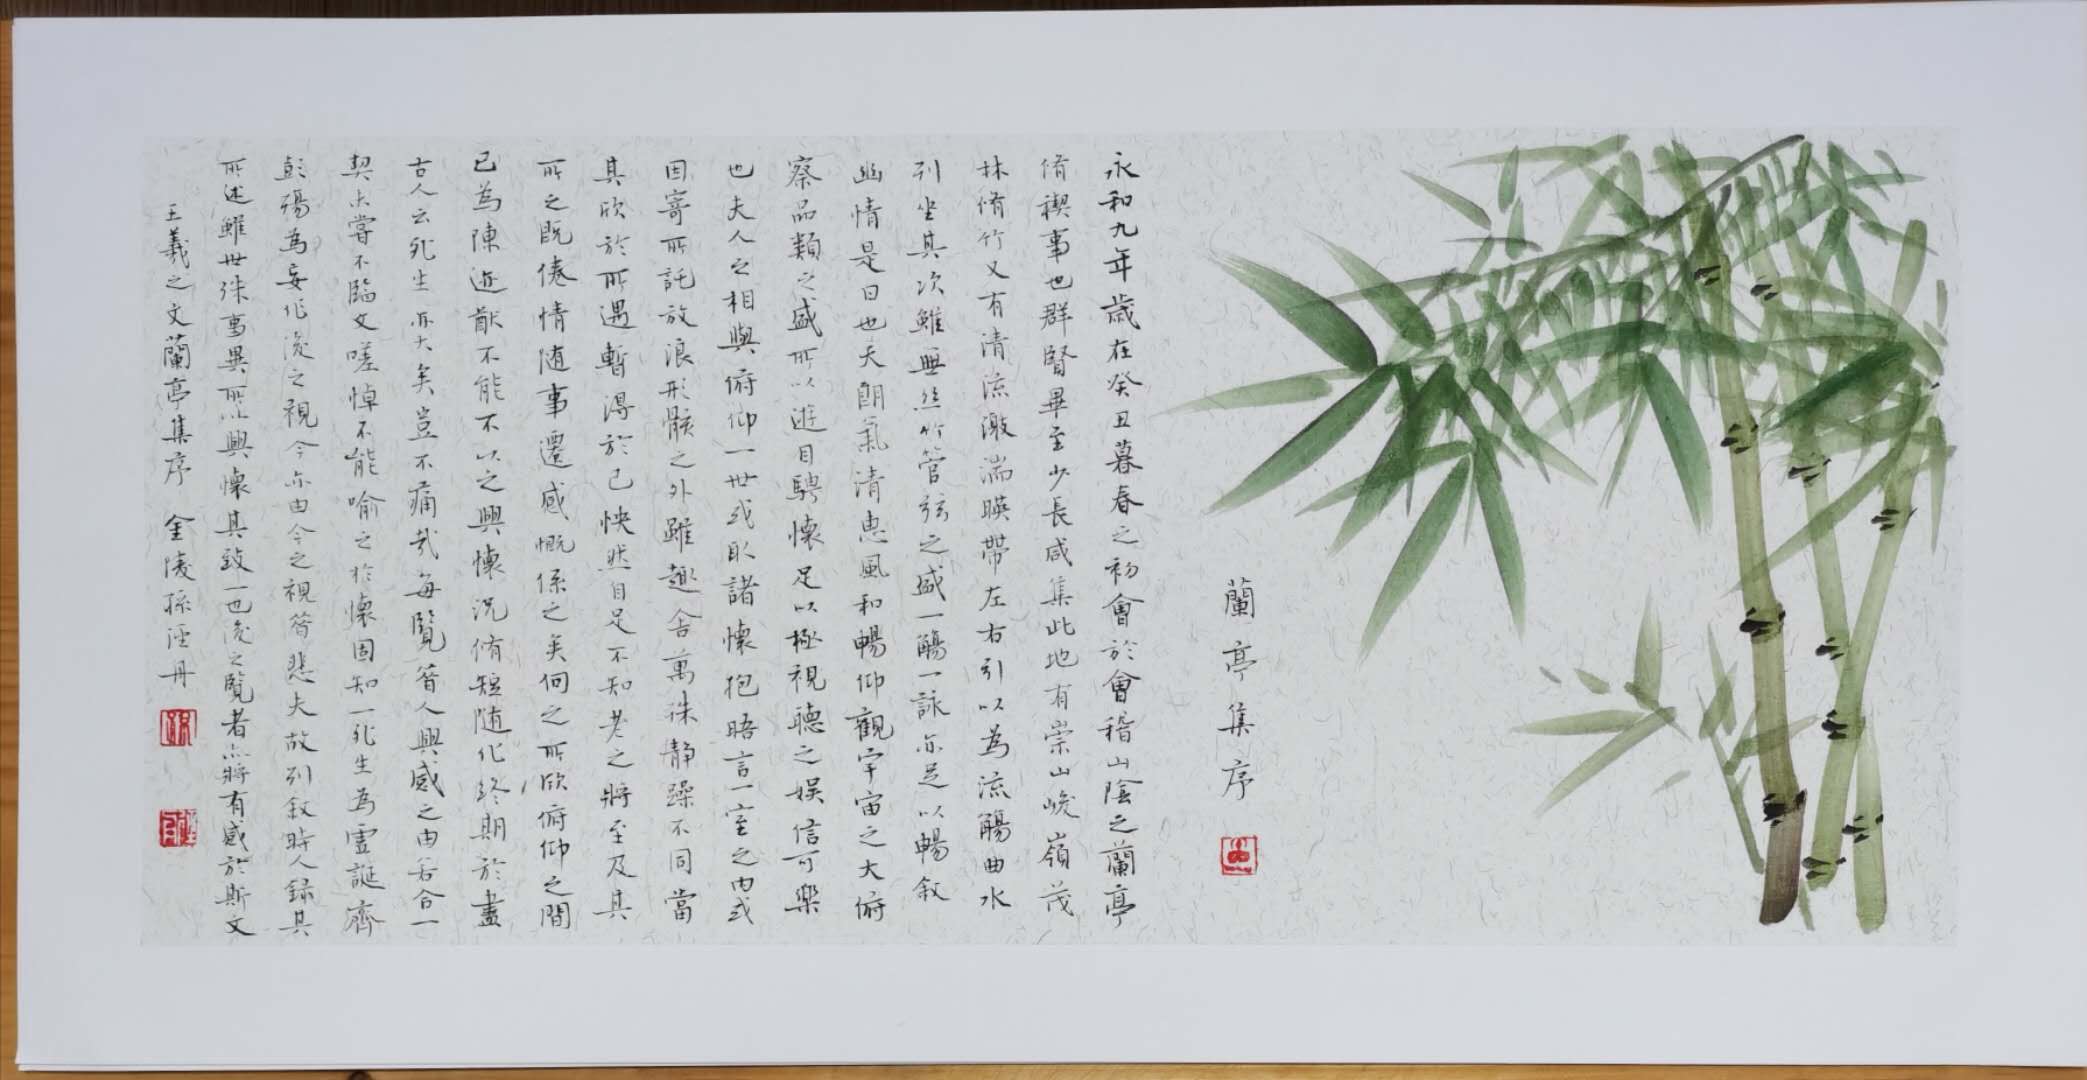 蘭亭集序
永和九年歲在癸丑暮春之初會於會稽山陰之蘭亭
脩禊事也群賢畢至少長咸集此地有崇山峻嶺茂
林脩竹又有清流激湍暎帶左右引以為流觴曲水
列坐其次雖無絲竹管弦之盛一觴一詠亦足以暢敘
幽情是日也天朗氣清惠風和暢仰觀宇宙之大俯
察品類之盛所以遊目騁懷足以極視聽之娛信可樂
也夫人之相與俯仰一世或取諸懷抱晤言一室之內或
因寄所託放浪形骸之外雖趣舍萬殊靜躁不同當
其欣於所遇暫得於己怏然自足不知老之將至及其
所之既倦情隨事遷感慨係之矣向之所欣俯仰之間
已為陳迹猷不能不以之興懷況脩短隨化終期於盡
古人云死生亦大矣豈不痛哉每覽昔人興感之由若合一
契未嘗不臨文嗟悼不能喻之於懷固知一死生為虛誕齊
彭殤為妄作後之視今亦由今之視昔悲夫故列敘時人錄其
所述雖世殊事異所以興懷其致一也後之覽者亦將有感於斯文
王羲之文蘭亭集序 金陵孫涇丹